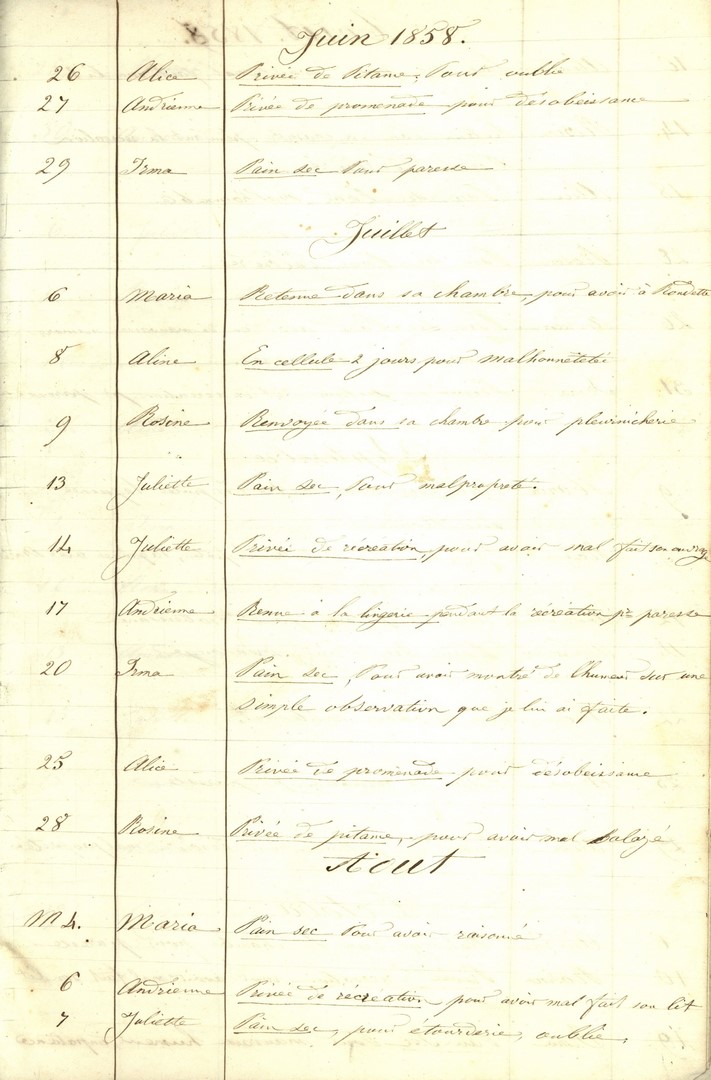 Juin 1858.
26 Alice Privée de Pitame, Pour oublie
27 Andrienne Privée de promenade pour désobeissance
29 Irma Pain sec Pour paresse
Juillet
6 Maria Retenue dans sa chambre, pour avoir à
8 Aline En cellule 2 jours pour malhonnêtetée
9 Rosine Renvoyée dans sa chambre pour pleurnicherie
13 Juliette Pain sec, Pour malpropreté.
14 Juliette Privée de récréation, pour avoir mal fait son ouvrage
17 Andrienne à la lingerie pendant la récréation pr paresse
20 Irma Pain sec, Pour avoir montré de l'humeur sur une
simple observation que je lui ai faite.
25 Alice Privée de promenade pour désobeissance
28 Rosine Privée de pitame, pour avoir mal balayé
Aout
4. Maria Pain sec Pour avoir raisonné
6 Andrienne Privée de récréation pour avoir mal fait son lit
7 Juliette Pain sec, pour étourderie, oublie,